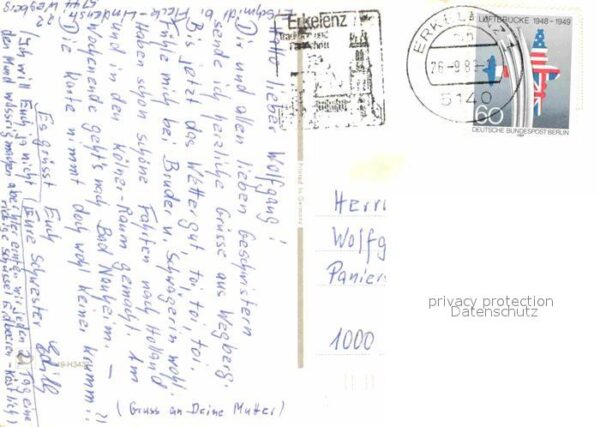 Hallo lieber Wolfgang!
Dir und allen lieben Geschwistern
sende ich herzliche Grüsse aus Wegberg.
Bis jetzt das Wetter gut, toi, toi, toi.
Fühle mich bei Bruder u. Schwägerin wohl.
Haben schon schöne Fahrten nach Holland
und in den Kölner-Raum gemacht. Am
Wochenende geht's nach Bad Nauheim. —
Die Karte nimmt doch wohl keiner krumm?!
Es grüsst Euch
Eure Schwester
(Ich will Euch ja nicht
den Mund wässrig machen aber hier ernten wir jeden 2. Tag eine
riesige Schüssel Erdbeeren - Köstlich!)
(Gruss an Deine Mutter)
Printed in Germany
Erkelenz
Tradition und
Fortschritt
ERKELENZ 1
5140
LUFTBRÜCKE 1948-1949
60
DEUTSCHE BUNDESPOST BERLIN
Herrn
Wolfg
Paniers
1000
privacy protection
Datenschutz